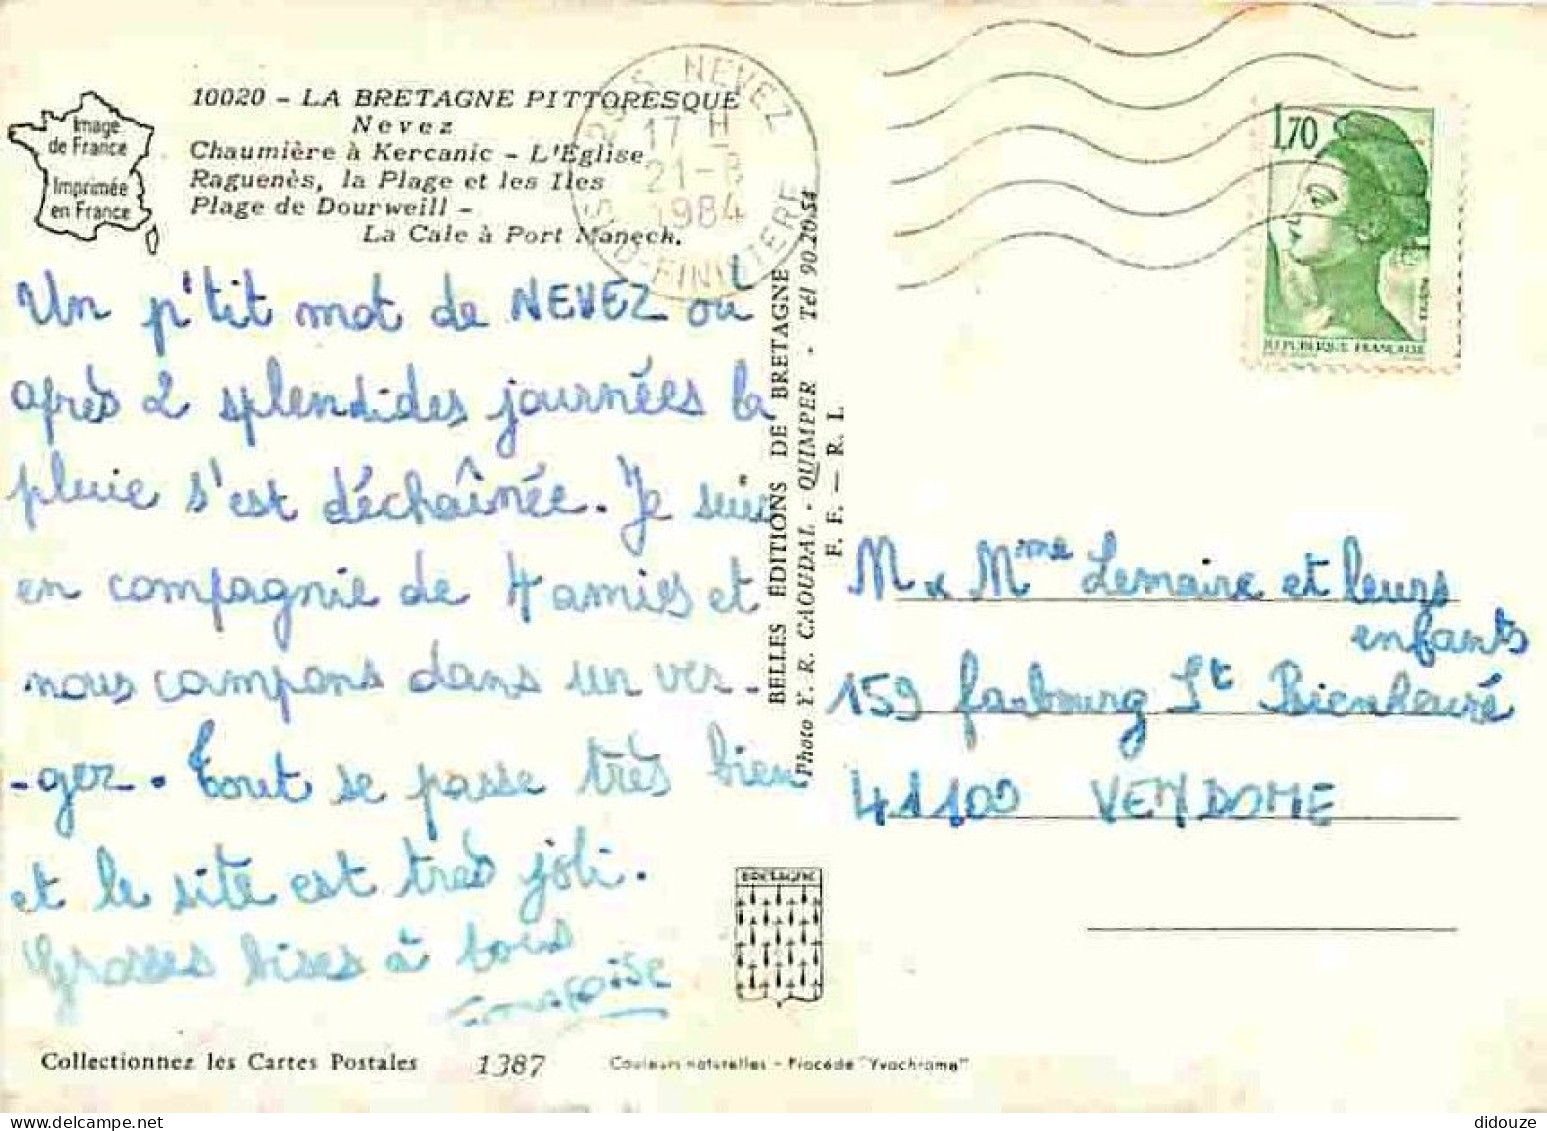 Image
de France
Imprimée
en France
10020 - LA BRETAGNE PITTORESQUE
Nevez
Chaumière à Kercanic - L'Eglise
Raguenès, la Plage et les Iles
Plage de Dourweill -
La Cale à Port Maneck.
29S NEVEZ
17 H
21-8
1984
SUD-FINISTERE
1,70
REPUBLIQUE FRANÇAISE
Un p'tit mot de NEVEZ où
après 2 splendides journées la
pluie s'est déchaînée. Je suis
en compagnie de 4 amies et
nous campons dans un ver-
-ger. Tout se passe très bien
et le site est très joli.
Grosses bises à tous
Françoise
BELLES EDITIONS DE BRETAGNE
Photo Y. R. CAOUDAL - QUIMPER - Tél 90.20.54
F. F. — R. L.
M & Mme Lemaire et leurs
enfants
159 faubourg St Bienheuré
41100 VENDOME
BRETAGNE
Collectionnez les Cartes Postales
1387
Couleurs naturelles - Procédé "Yvochrome"
didouze